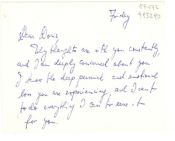 Friday
Dear Doris
My thoughts are with you constantly,
and I am deeply concerned about you.
I know the deep personal and emotional
loss you are experiencing, and I want to
do everything I can to ease it
for you.